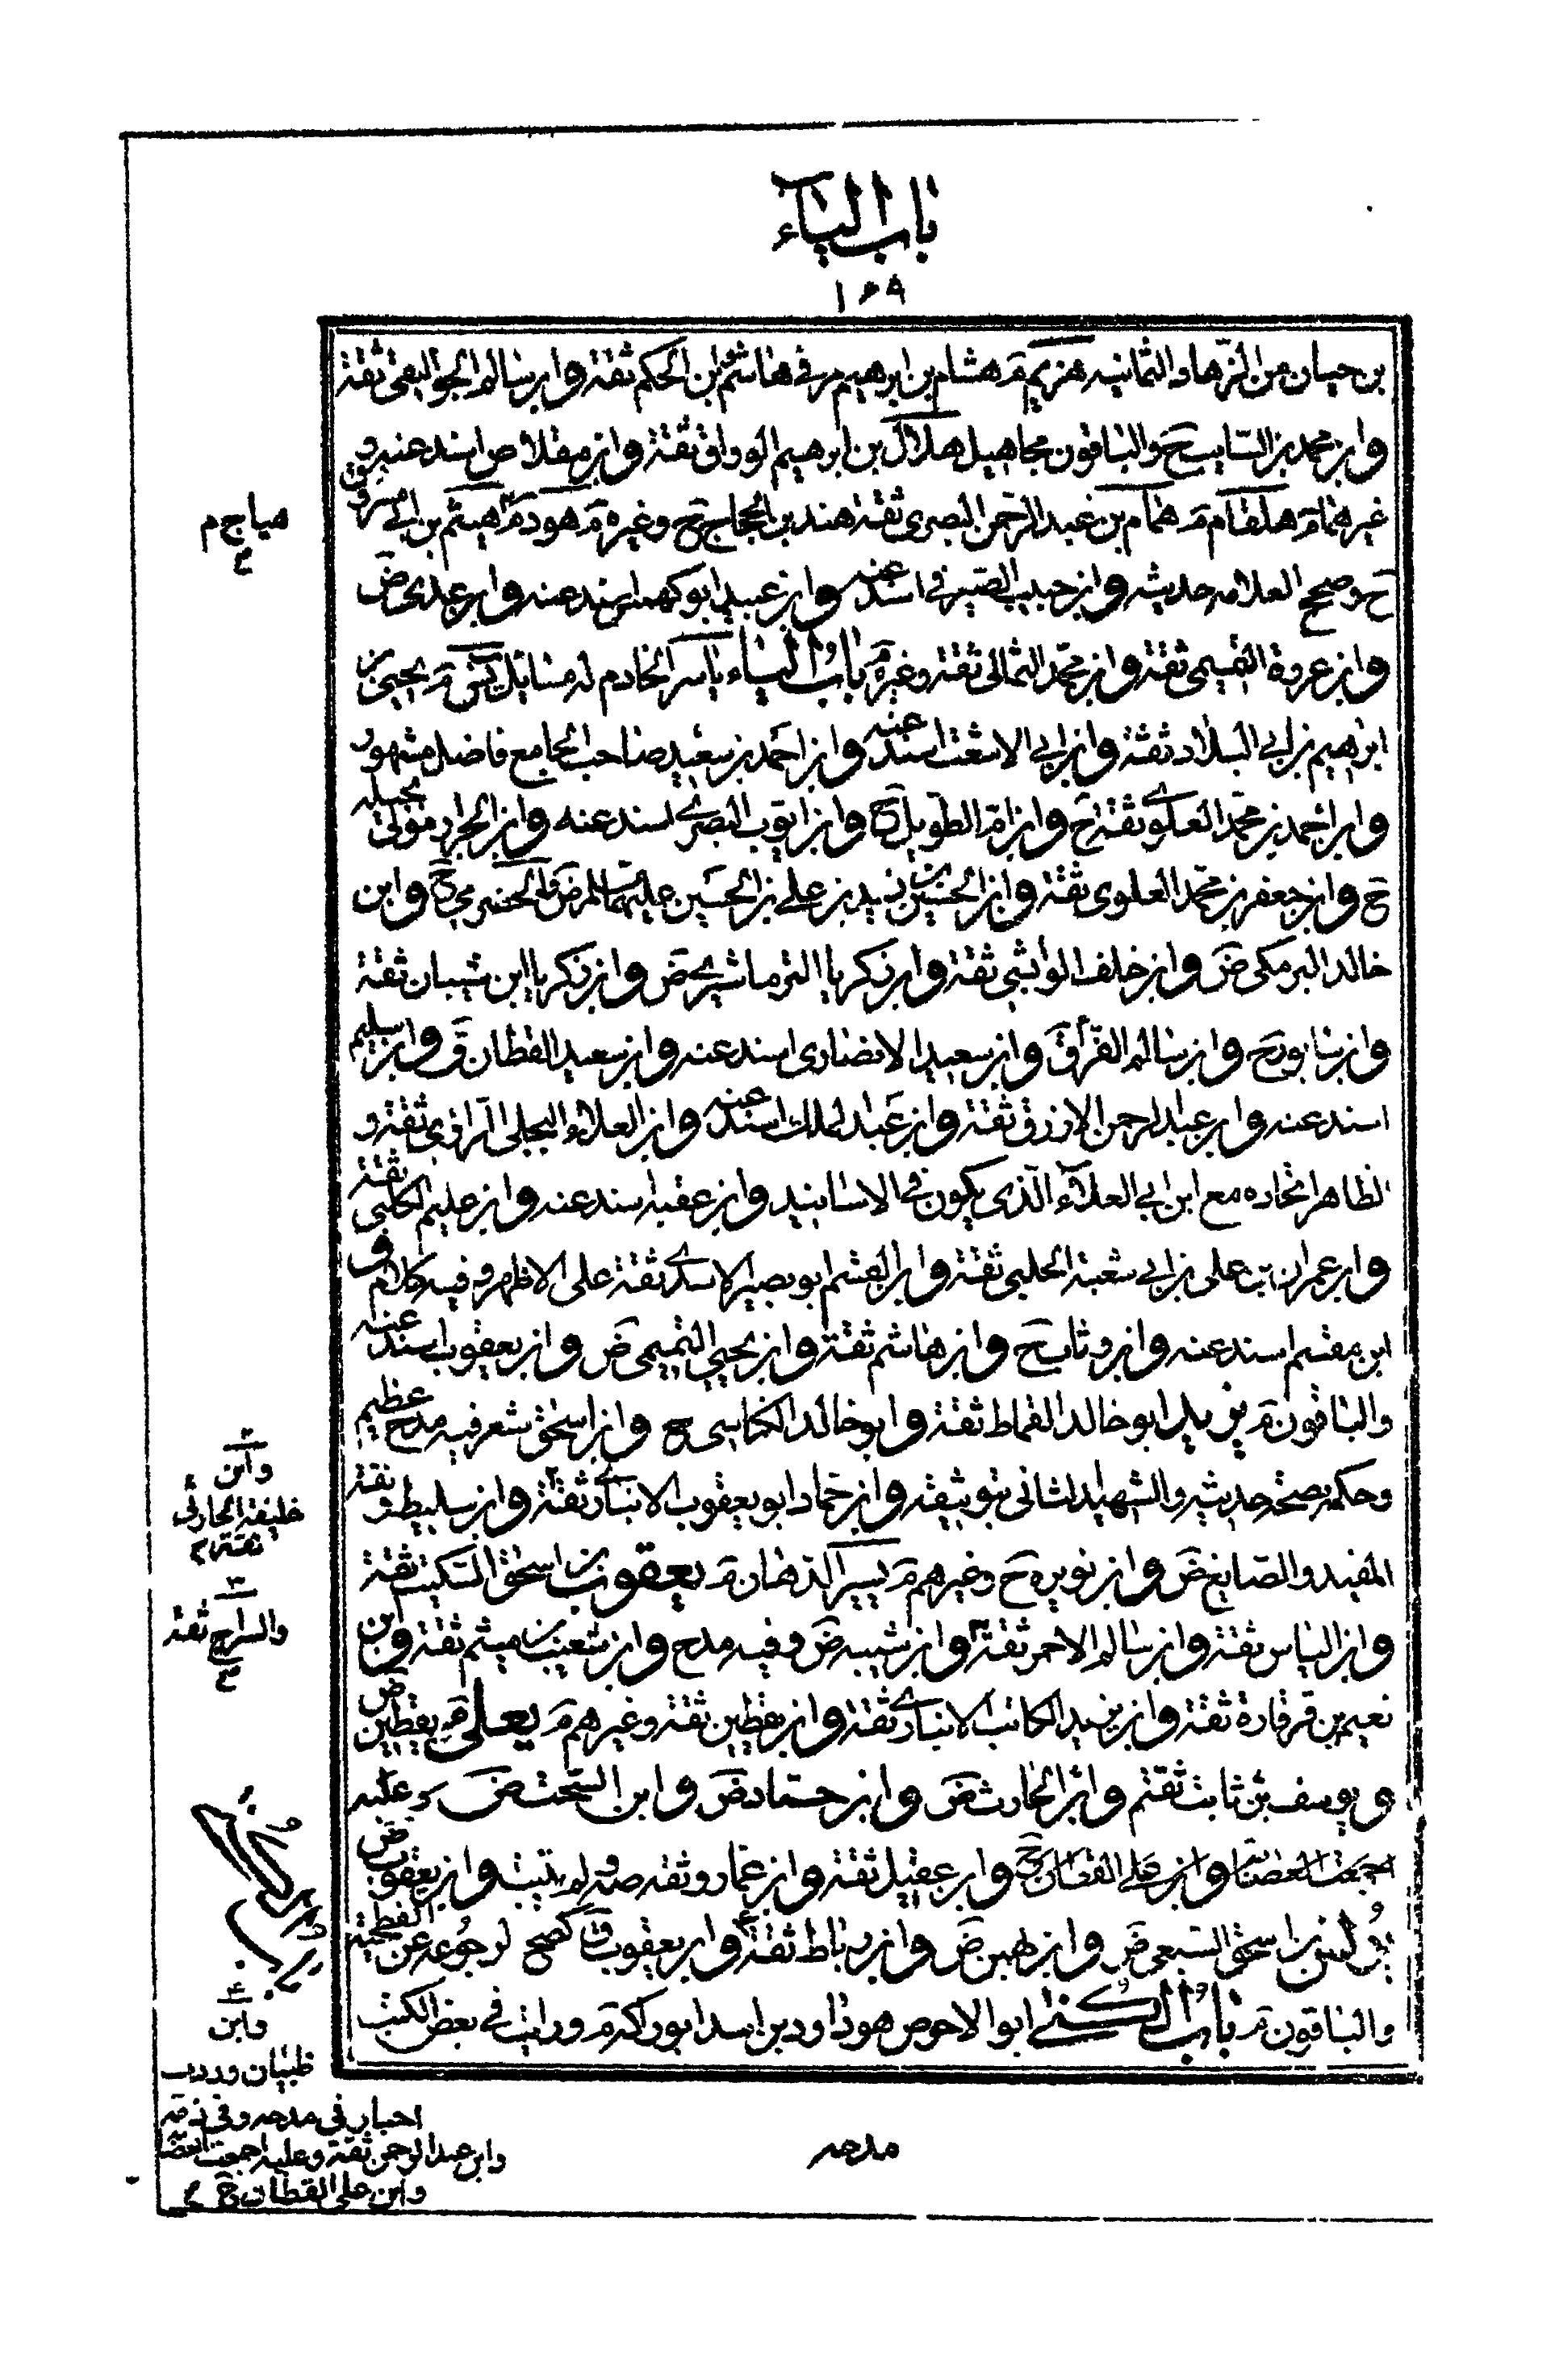 باب الياء
١٦٩
بن حيان من الزهاد الثمانيه هزيم م هشام بن ابرهيم مر في هاشم وابن الحكم ثقة وابن سالم الجواليقى ثقة
وابن محمد بن السايب ح والباقون مجاهيل هلال بن ابرهيم الوراق ثقة وابن مقلاص اسند عنه و
غيرهما م هلقام م همام بن عبد الرحمن البصرى ثقة هند بن الحجاج ح وغيره م هود م هيثم بن ابي مسروق
ح وصحح العلامه حديثه وابن حبيب الصيرفي اسند عنه وابن عبيد ابو كهمس اسند عنه وابن عدى ض
وابن عروة التميمى ثقة وابن محمد الثمالى ثقة وغيره م باب الياء ياسر الخادم له مسائل م يحيى بن
ابرهيم بن ابي البلاد ثقة وابن ابي الاشعث اسند عنه وابن احمد بن سعيد صاحب الجامع فاضل مشهور
وابن احمد بن محمد العلوي ثقة وابن ام الطويل ح وابن ايوب البصرى اسند عنه وابن الجرار مولى بجيله
ح وابن جعفر بن محمد العلوى ثقة وابن الحسين بن زيد بن علي بن الحسين عليهما السلم ض والحضرمي ح وابن
خالد البرمكى ض وابن خلف الوابشى ثقة وابن زكريا الترماشيرى ض وابن زكريا ابن شيبان ثقة
وابن سابور ح وابن سالم الفراء ق وابن سعيد الانصارى اسند عنه وابن سعيد القطان ق وابن سليم
اسند عنه وابن عبد الرحمن الازرق ثقة وابن عبد الملك اسند عنه وابن العلاء البجلى الرازى ثقة و
الظاهر اتحاده مع ابن ابي العلاء الذى يكون في الاسانيد وابن عقبه اسند عنه وابن عليم الكلبى ثقة
وابن عمران بن على بن ابي شعبة الحلبى ثقة وابن القسم ابو بصير الاسدى ثقة على الاظهر وفيه كلام و
ابن مقسم اسند عنه وابن وثاب ح وابن هاشم ثقة وابن يحيى التميمى ض وابن يعقوب اسند عنه
والباقون م يزيد ابو خالد القماط ثقة وابو خالد الكناسى ح وابن اسحق شعر فيه مدح عظيم
وحكم بصحة حديثه والشهيد الثانى بتوثيقه وابن حماد ابو يعقوب الانبارى ثقة وابن سليط وثقة
المفيد والصايغ ض وابن نويره ح وغيرهم م يسير الدهان م يعقوب بن اسحق السكيت ثقة
وابن الياس ثقة وابن سالم الاحمر ثقة وابن شيبه ض وفيه مدح وابن شعيب بن ميثم ثقة وابن
نعيم بن قرقارة ثقة وابن يزيد الكاتب الانبارى ثقة وابن يقطين ثقة وغيرهم م يعلى م يقطين ض
م يوسف بن ثابت ثقة م وابن الحارث ض وابن حماد ض وابن السخت ض وعليه
اجمعت العصابة وابن علي القطان ح وابن عقيل ثقة وابن عمار وثقه صه ولم يثبت وابن يعقوب ض
يونس بن اسحق السبيعى ض وابن بهمن ض وابن رباط ثقة وابن يعقوب ق كصح لرجوعه عن الفطحية
والباقون م باب الكنى ابو الاحوص هو داود بن اسد ابو راكة م ورايت في بعض الكتب
هياج م
ع
٢
وابن
خليفة الحارثى
ثقة
٣
والسراج ثقة
٤
وابن
ظبيان وردت
اخبار فى مدحه وفى ذمه
وابن عبد الرحمن ثقة وعليه اجمعت العصا
وابن على القطان ح
مدحه